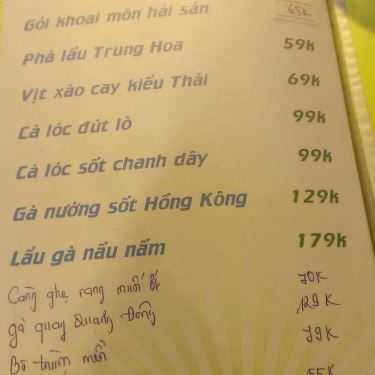 Gỏi khoai môn hải sản 65k
Phá lấu Trung Hoa 59k
Vịt xào cay kiểu Thái 69k
Cá lóc đút lò 99k
Cá lóc sốt chanh dây 99k
Gà nướng sốt Hồng Kông 129k
Lẩu gà nấu nấm 179k
Càng ghẹ rang muối ớt 70K
gà quay Quảng Đông 129K
Bò 79K
55K